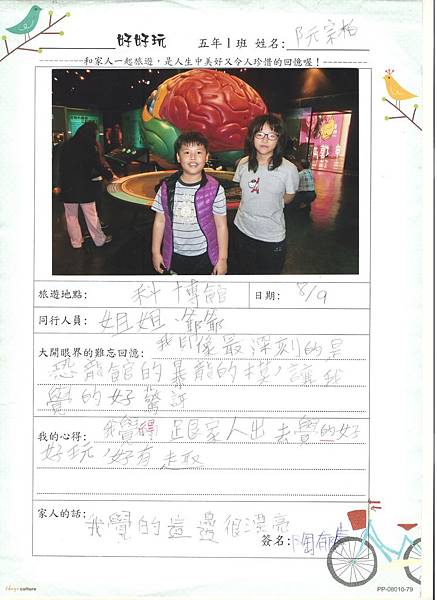 好好玩 五年1班 姓名:阮宗柏
和家人一起旅遊，是人生中美好又令人珍惜的回憶喔！
旅遊地點: 科博館 日期: 8/9
同行人員: 姐姐、爺爺
大開眼界的難忘回憶: 我印像最深刻的是
恐龍館的暴龍的模，讓我
覺的好驚訝
我的心得: 我覺得跟家人出去覺的好
好玩，好有走取
家人的話:
我覺的這邊很漂亮
簽名:
culture
PP-08010-79